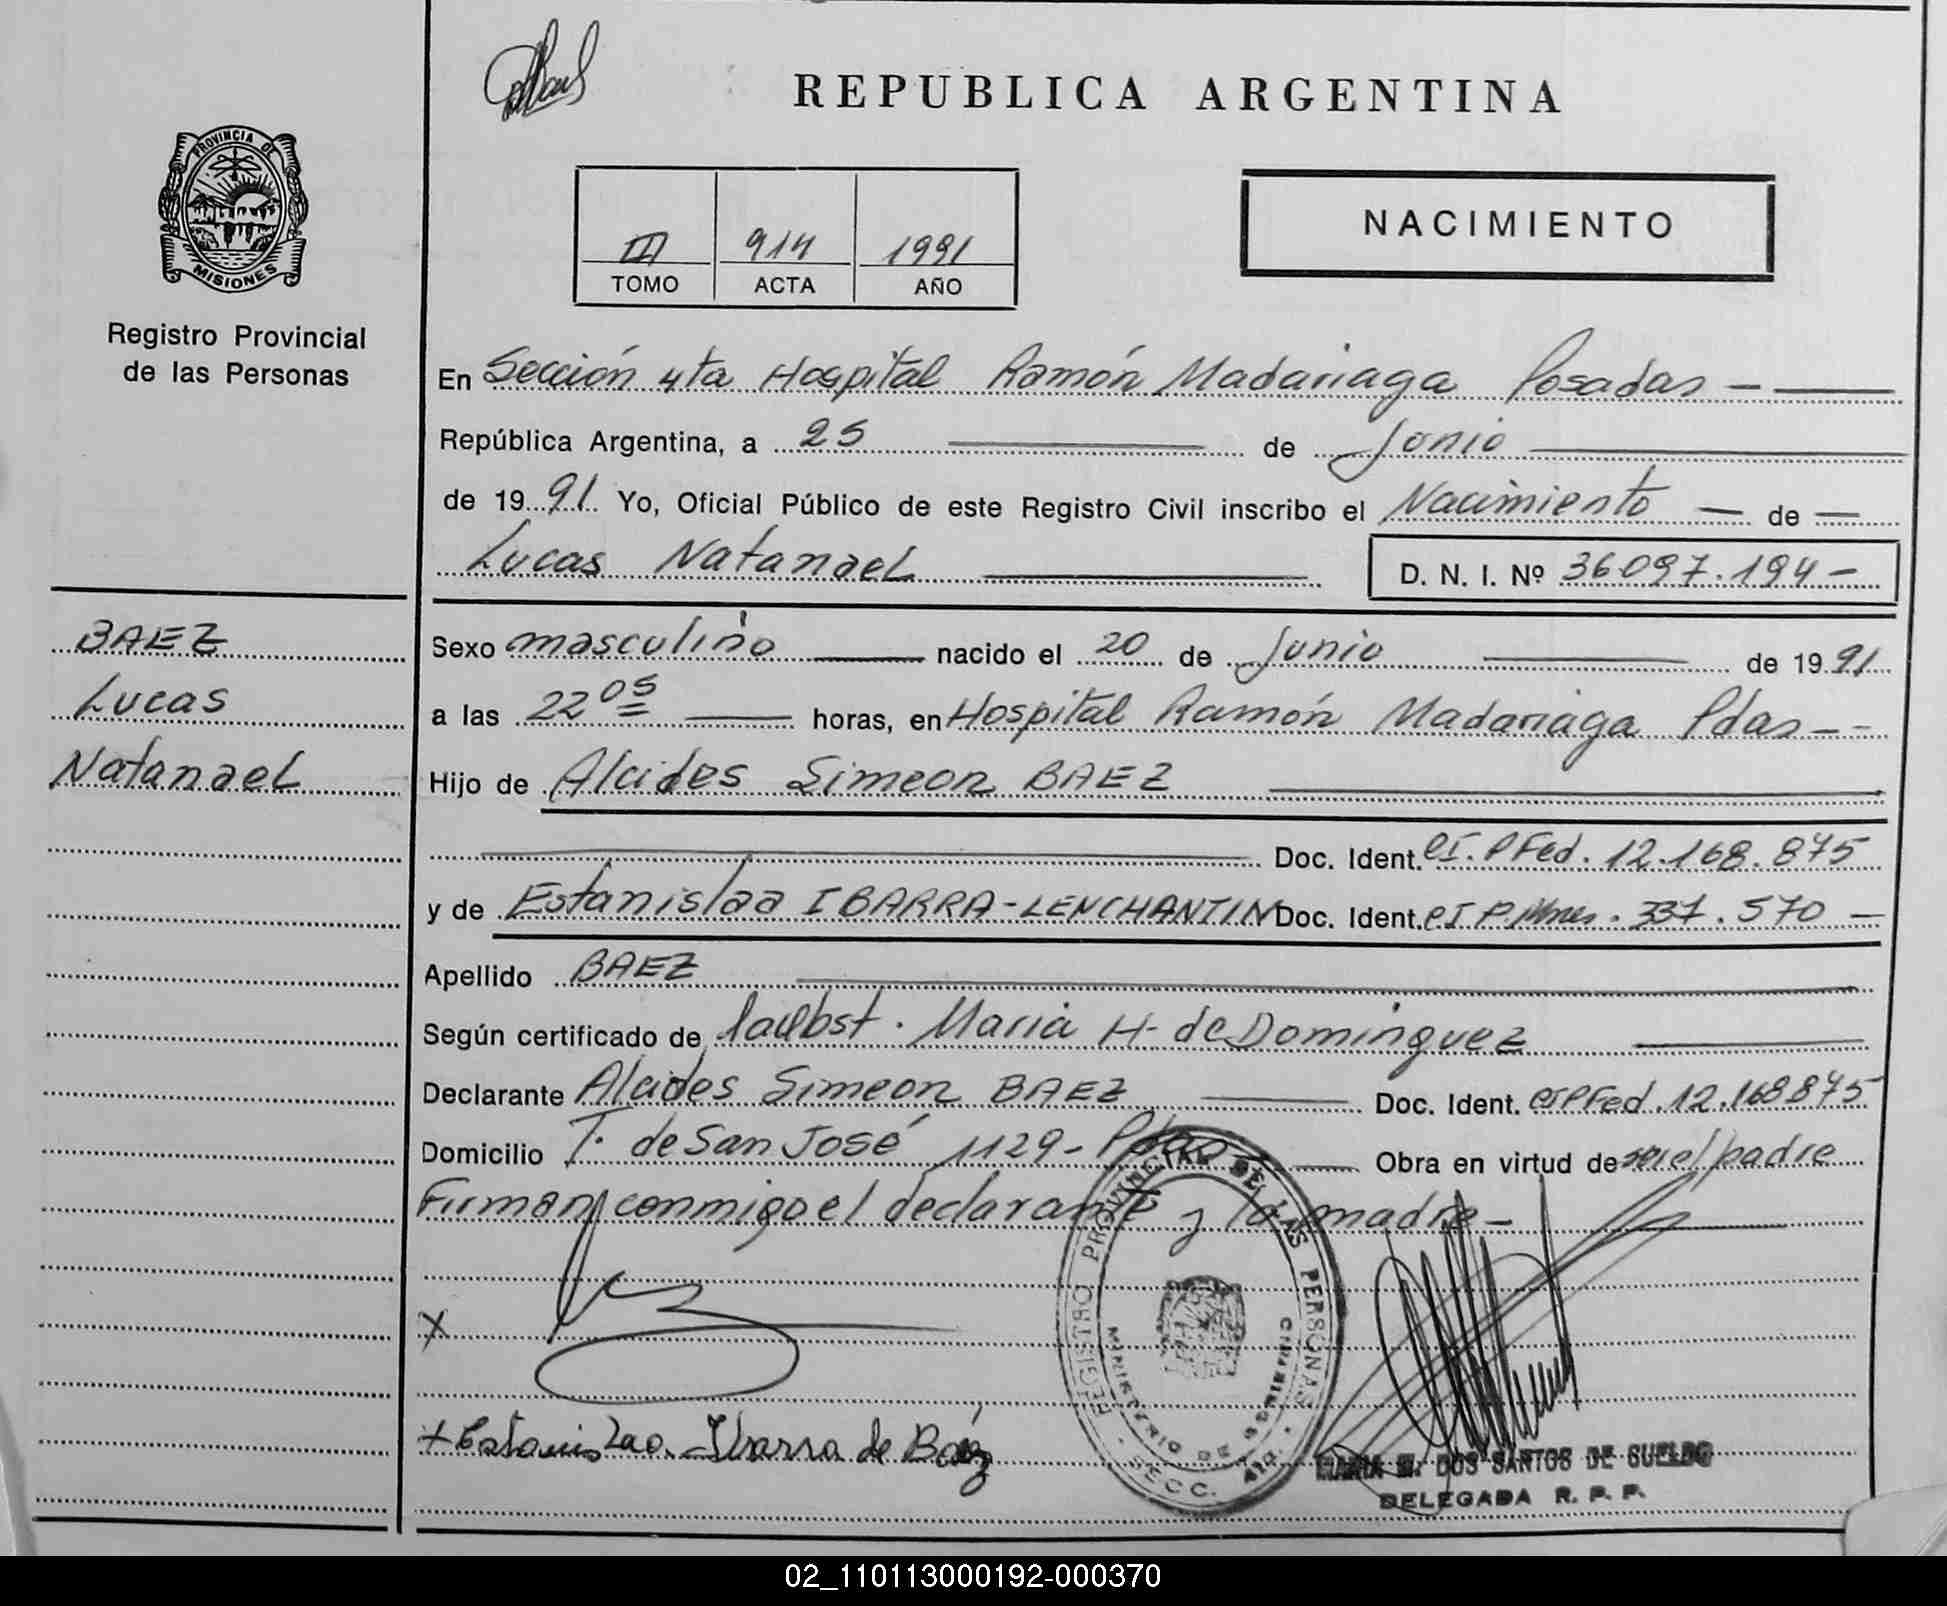 REPUBLICA ARGENTINA
PROVINCIA DE
MISIONES
Registro Provincial
de las Personas
III 914 1991
TOMO ACTA AÑO
NACIMIENTO
En Sección 4ta Hospital Ramón Madariaga Posadas -
República Argentina, a 25 de Junio
de 1991. Yo, Oficial Público de este Registro Civil inscribo el Nacimiento de
Lucas Natanael
D. N. I. Nº 36.097.194-
BAEZ
Lucas
Natanael
Sexo masculino nacido el 20 de Junio de 1991
a las 22 05 horas, en Hospital Ramón Madariaga Pdas--
Hijo de Alcides Simeon BAEZ
Doc. Ident. CI. PFed. 12.168.875
y de Estanislaa IBARRA-LENCHANTIN Doc. Ident. CI P. Mnes. 337.570 -
Apellido BAEZ
Según certificado de María H- de Dominguez
Declarante Alcides Simeon BAEZ Doc. Ident. CIPFed. 12.168875
Domicilio T. de San José 1129- Pdas Obra en virtud de ser el padre
Firman conmigo el declarante y la madre-
X
+ Estanislao. Ibarra de Baéz
REGISTRO PROVINCIAL DE LAS PERSONAS
MINISTERIO DE GOBIERNO
SECC. 4ta.
DOS SANTOS DE SUELDO
DELEGADA R. P. P.
02_110113000192-000370